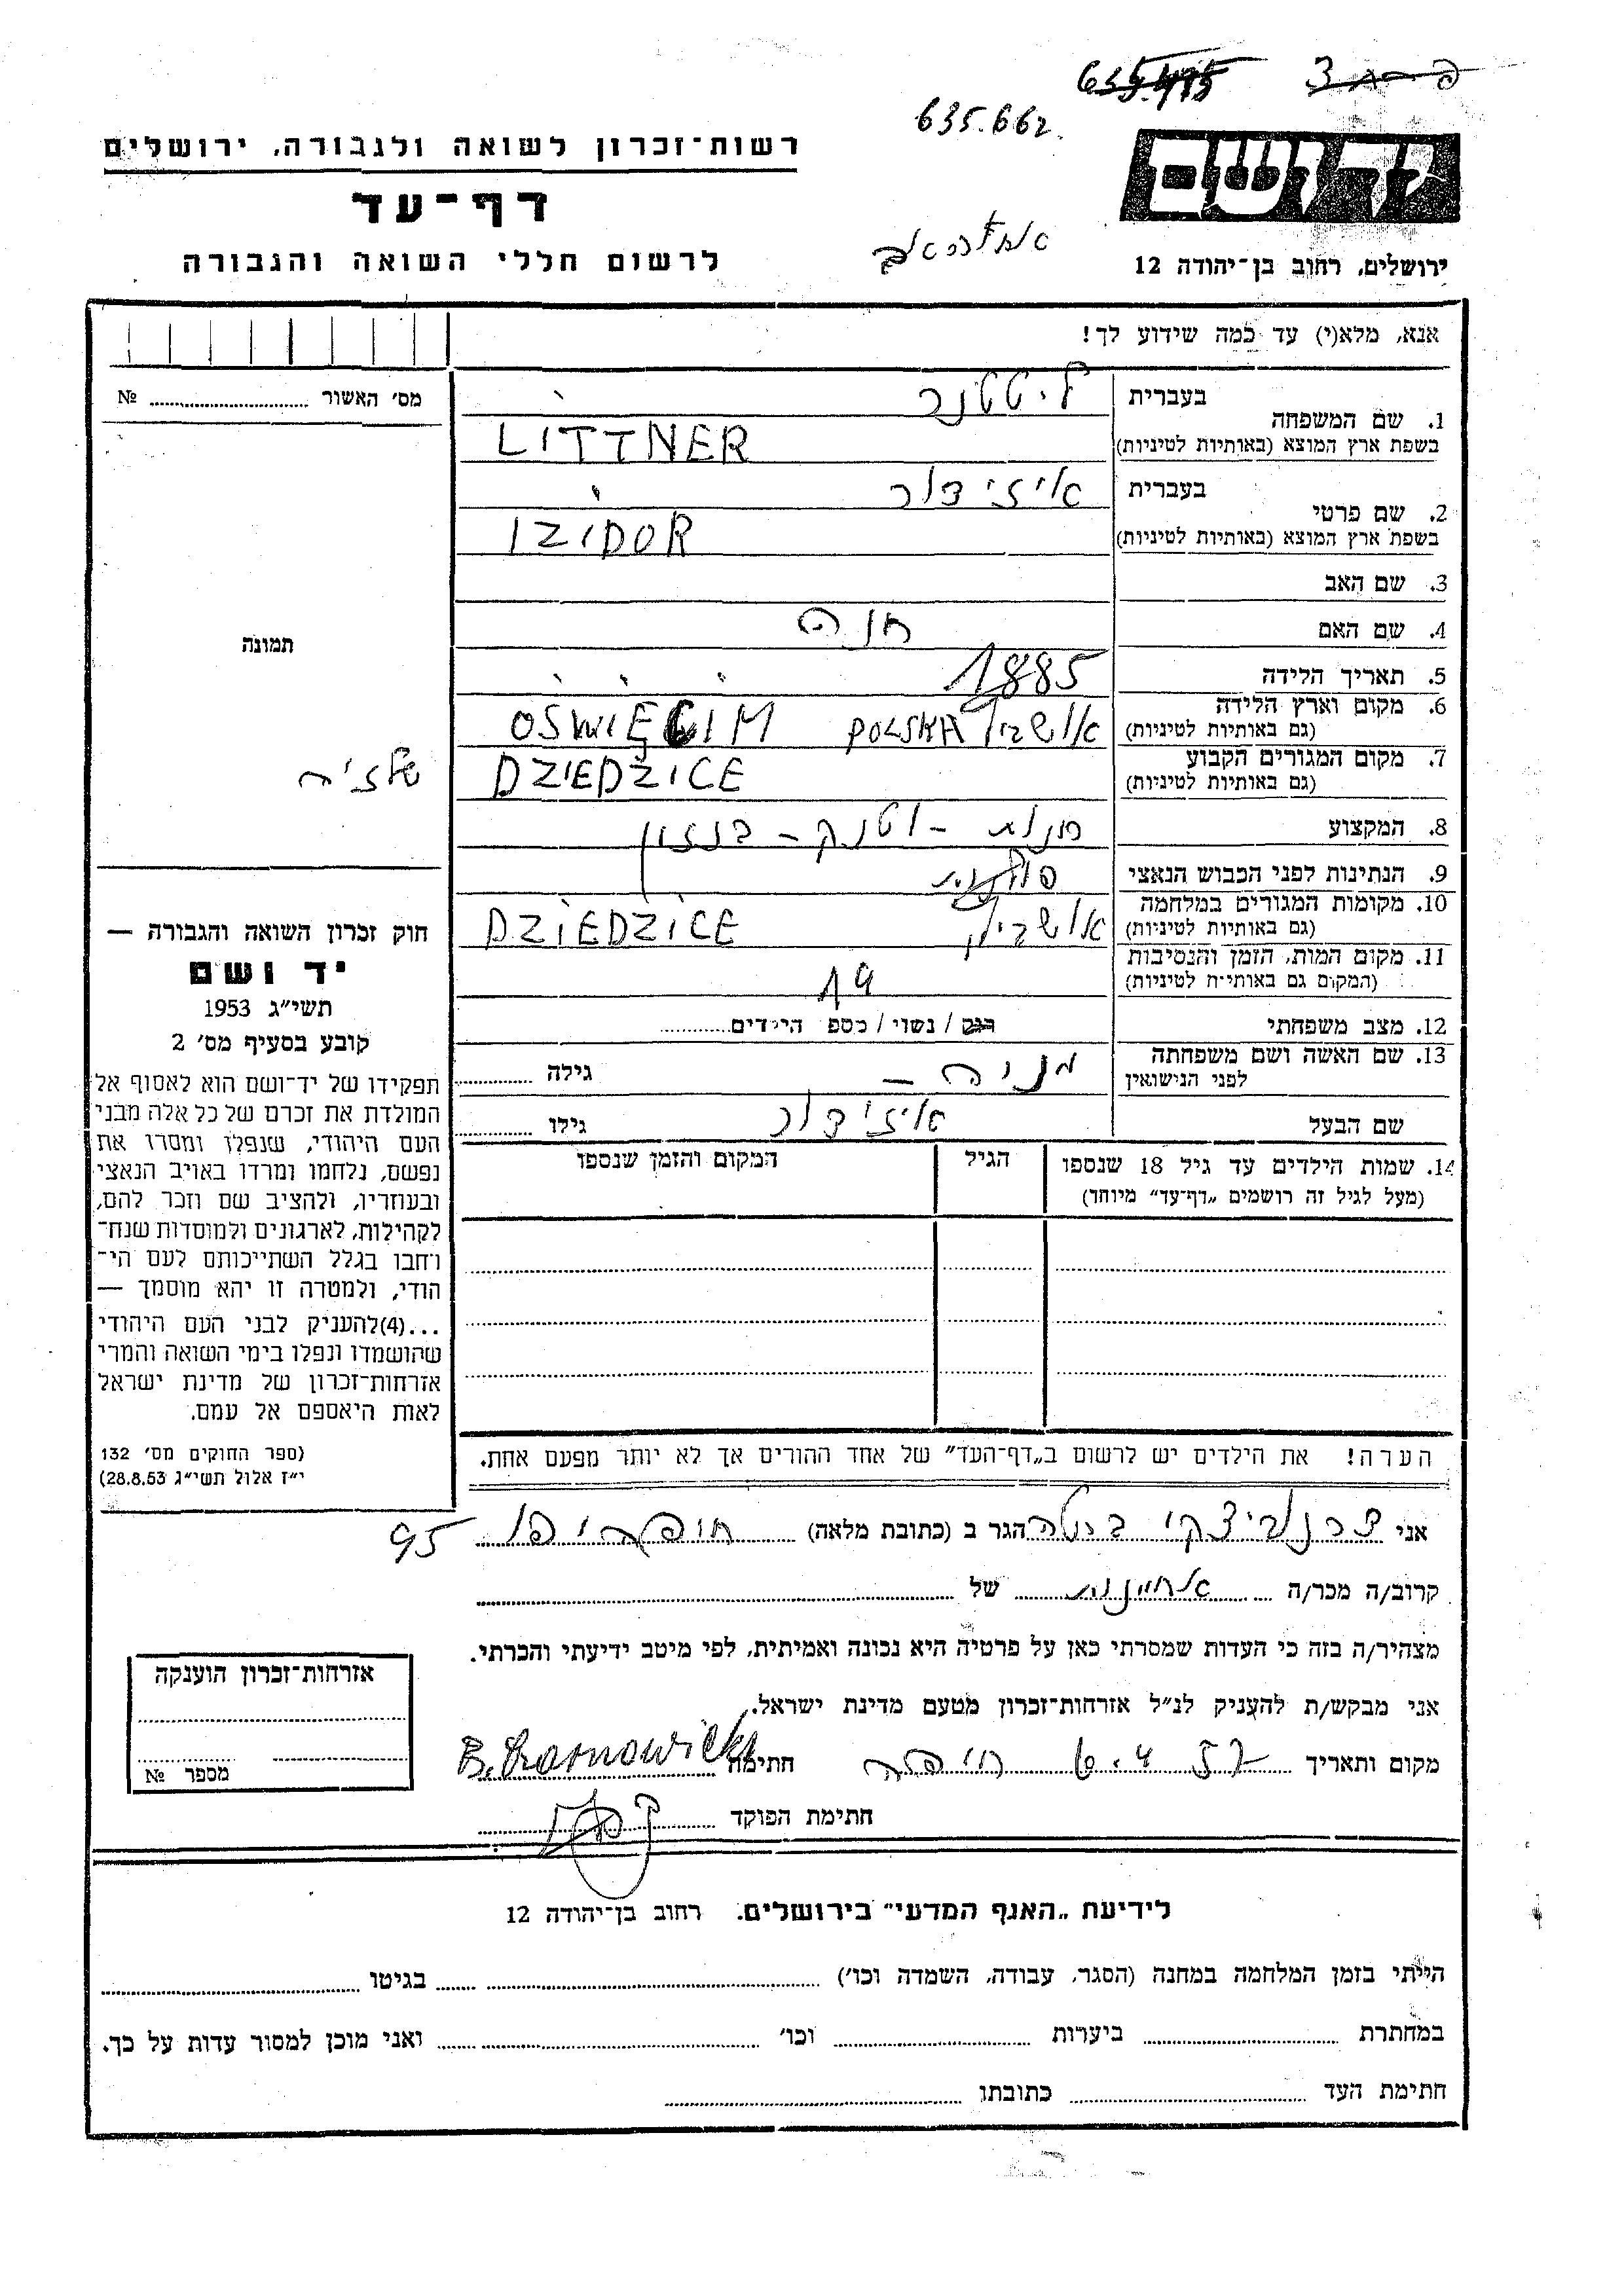 635.475
635.662
רשות־זכרון לשואה ולגבורה, ירושלים
יד ושם
דף־עד
לרשום חללי השואה והגבורה
ירושלים, רחוב בן־יהודה 12
אנא, מלא(י) עד כמה שידוע לך!
מס׳ האשור № 
1. שם המשפחה בעברית ליטטנר
בשפת ארץ המוצא (באותיות לטיניות) LITTNER
2. שם פרטי בעברית איזידור
בשפת ארץ המוצא (באותיות לטיניות) IZIDOR
3. שם האב
4. שם האם חנה
תמונה
5. תאריך הלידה 1885
6. מקום וארץ הלידה (גם באותיות לטיניות) POLSKA OSWIĘCIM
7. מקום המגורים הקבוע (גם באותיות לטיניות) DZIEDZICE
שלזיה
8. המקצוע
9. הנתינות לפני הכבוש הנאצי פולנית
10. מקומות המגורים במלחמה (גם באותיות לטיניות) DZIEDZICE
11. מקום המות, הזמן והנסיבות (המקום גם באותיות לטיניות) 19
12. מצב משפחתי רווק / נשוי / מספר הילדים
13. שם האשה ושם משפחתה לפני הנישואין מניה – גילה
שם הבעל איזידור גילו
14. שמות הילדים עד גיל 18 שנספו הגיל המקום והזמן שנספו
(מעל לגיל זה רושמים „דף־עד” מיוחד)
הערה! את הילדים יש לרשום ב„דף־העד” של אחד ההורים אך לא יותר מפעם אחת.
חוק זכרון השואה והגבורה —
יד ושם
תשי״ג 1953
קובע בסעיף מס׳ 2
תפקידו של יד־ושם הוא לאסוף אל
המולדת את זכרם של כל אלה מבני
העם היהודי, שנפלו ומסרו את
נפשם, נלחמו ומרדו באויב הנאצי
ובעוזריו, ולהציב שם וזכר להם,
לקהילות, לארגונים ולמוסדות שנח־
רבו בגלל השתייכותם לעם הי־
הודי, ולמטרה זו יהא מוסמך —
...(4)להעניק לבני העם היהודי
שהושמדו ונפלו בימי השואה והמרי
אזרחות־זכרון של מדינת ישראל
לאות היאספם אל עמם.
(ספר החוקים מס׳ 132
י״ז אלול תשי״ג 28.8.53)
אני צרנוביצקי ברטה הגר ב (כתובת מלאה) 95
קרוב/ה מכר/ה אחיינית של
מצהיר/ה בזה כי העדות שמסרתי כאן על פרטיה היא נכונה ואמיתית, לפי מיטב ידיעתי והכרתי.
אני מבקש/ת להעניק לנ״ל אזרחות־זכרון מטעם מדינת ישראל.
מקום ותאריך חיפה חתימה
חתימת הפוקד
אזרחות־זכרון הוענקה
מספר №
לידיעת „האגף המדעי” בירושלים. רחוב בן־יהודה 12
הייתי בזמן המלחמה במחנה (הסגר, עבודה, השמדה וכו׳) בגיטו
במחתרת ביערות וכו׳ ואני מוכן למסור עדות על כך.
חתימת העד כתובתו